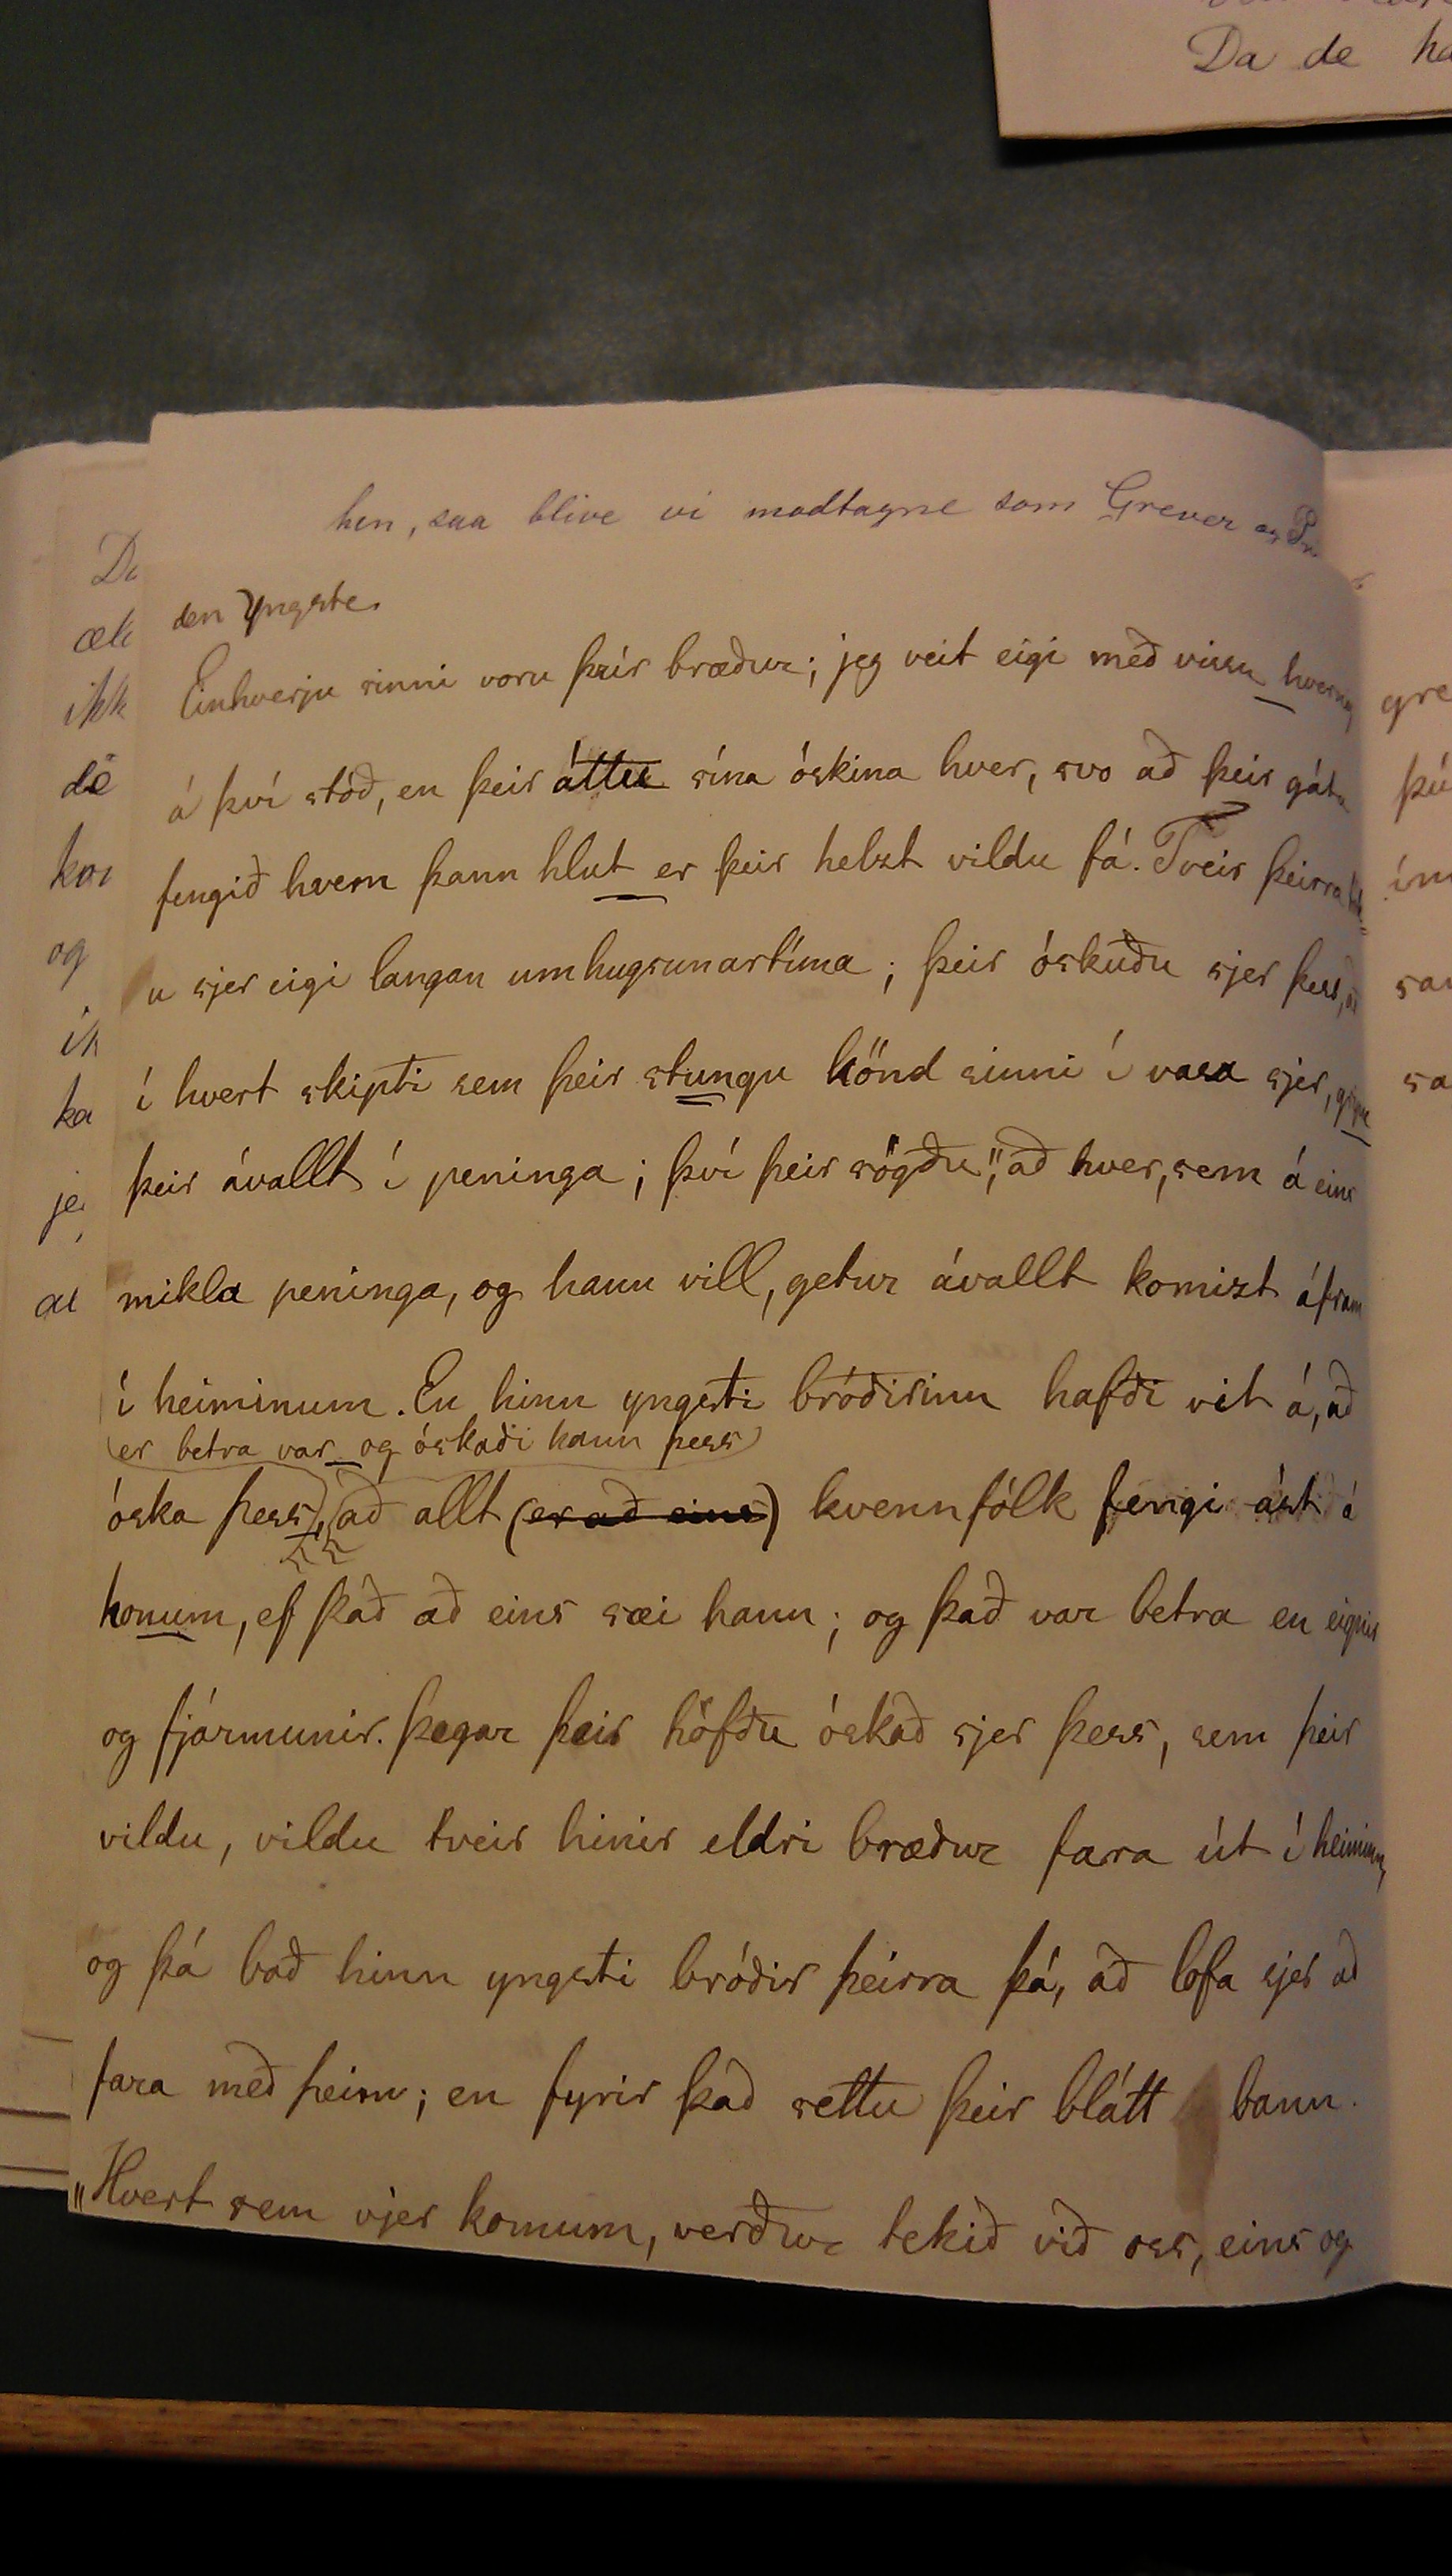 Da de
hen, saa blive vi modtagne som Grever og
den Yngste.
Einhverju sinni voru þrír bræður; jeg veit eigi með vissu hvernig
á því stóð, en þeir áttu sína óskina hver, svo að þeir gátu
fengið hvern þann hlut er þeir helzt vildu fá. Tveir þeirra
u sjer eigi langan umhugsunartíma; þeir óskuðu sjer þess, að
í hvert skipti sem þeir stungu hönd sinni í vasa sjer, gripu
þeir ávallt í peninga; því þeir sögðu, "að hver, sem á eins
mikla peninga, og hann vill, getur ávallt komizt áfram
í heiminum. En hinn yngsti bróðirinn hafði vit á, að
(er betra var og óskaði hann þess)
óska þess, að allt (er að eins) kvennfólk fengi ást á
honum, ef það að eins sæi hann; og það var betra en eignir
og fjármunir. Þegar þeir höfðu óskað sjer þess, sem þeir
vildu, vildu tveir hinir eldri bræður fara út í heiminn,
og þá bað hinn yngsti bróðir þeirra þá, að lofa sjer að
fara með þeim; en fyrir það settu þeir blátt bann.
"Hvert sem vjer komum, verður tekið við oss, eins og